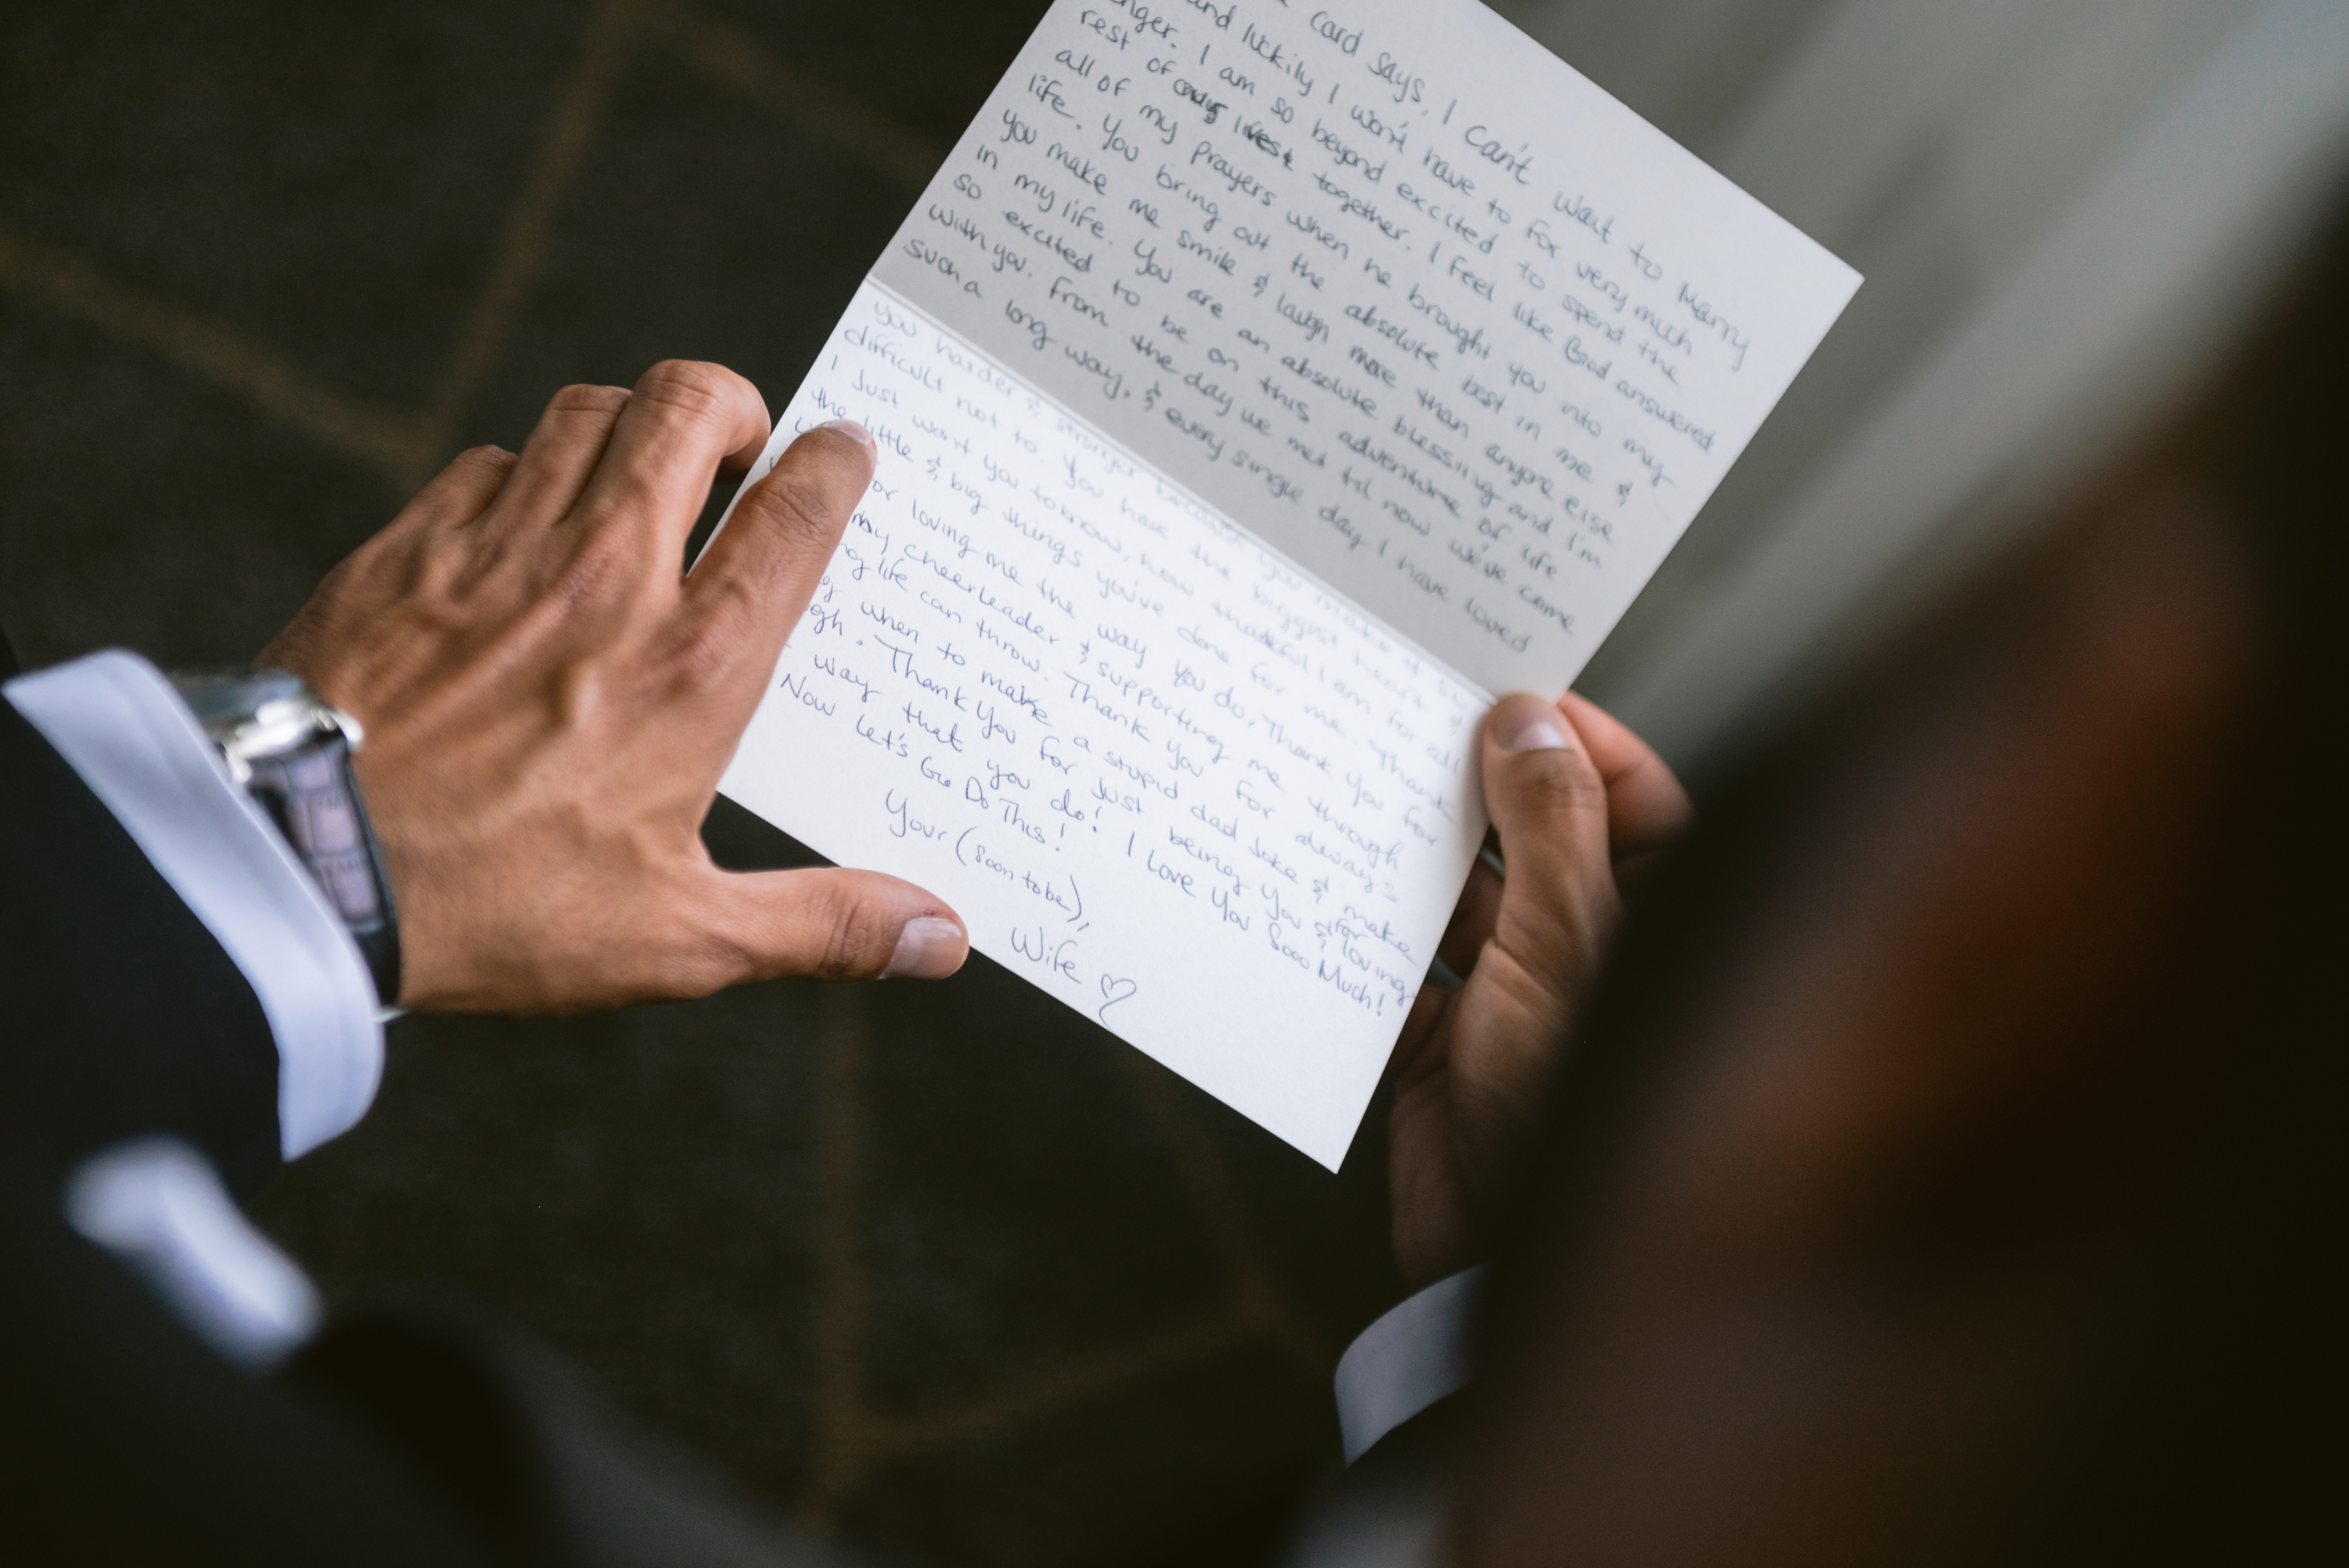 Card says, I Can't wait to Marry
and luckily I won't have to for very much
nger. I am so beyond excited to spend the
rest of our lives together. I feel like God answered
all of my prayers when he brought you into my
life. You bring out the absolute best in me &
you make me smile & laugh more than anyone else
in my life. You are an absolute blessing and I'm
so excited to be on this adventure of life
with you. From the day we met til now we've come
such a long way, & every single day I have loved
you harder & stronger because you make it so
difficult not to. You have the biggest heart &
I Just want you to know, how thankful I am for all
the little & big things you've done for me. Thank
for loving me the way you do, Thank you for
my cheerleader & supporting me through
life can throw. Thank you for always
when to make a stupid dad joke & make
gh. Thank You for Just being You & for loving
way that you do! I Love You Sooo Much!
Now Let's Go Do This!
Your (Soon to be),
Wife ♡